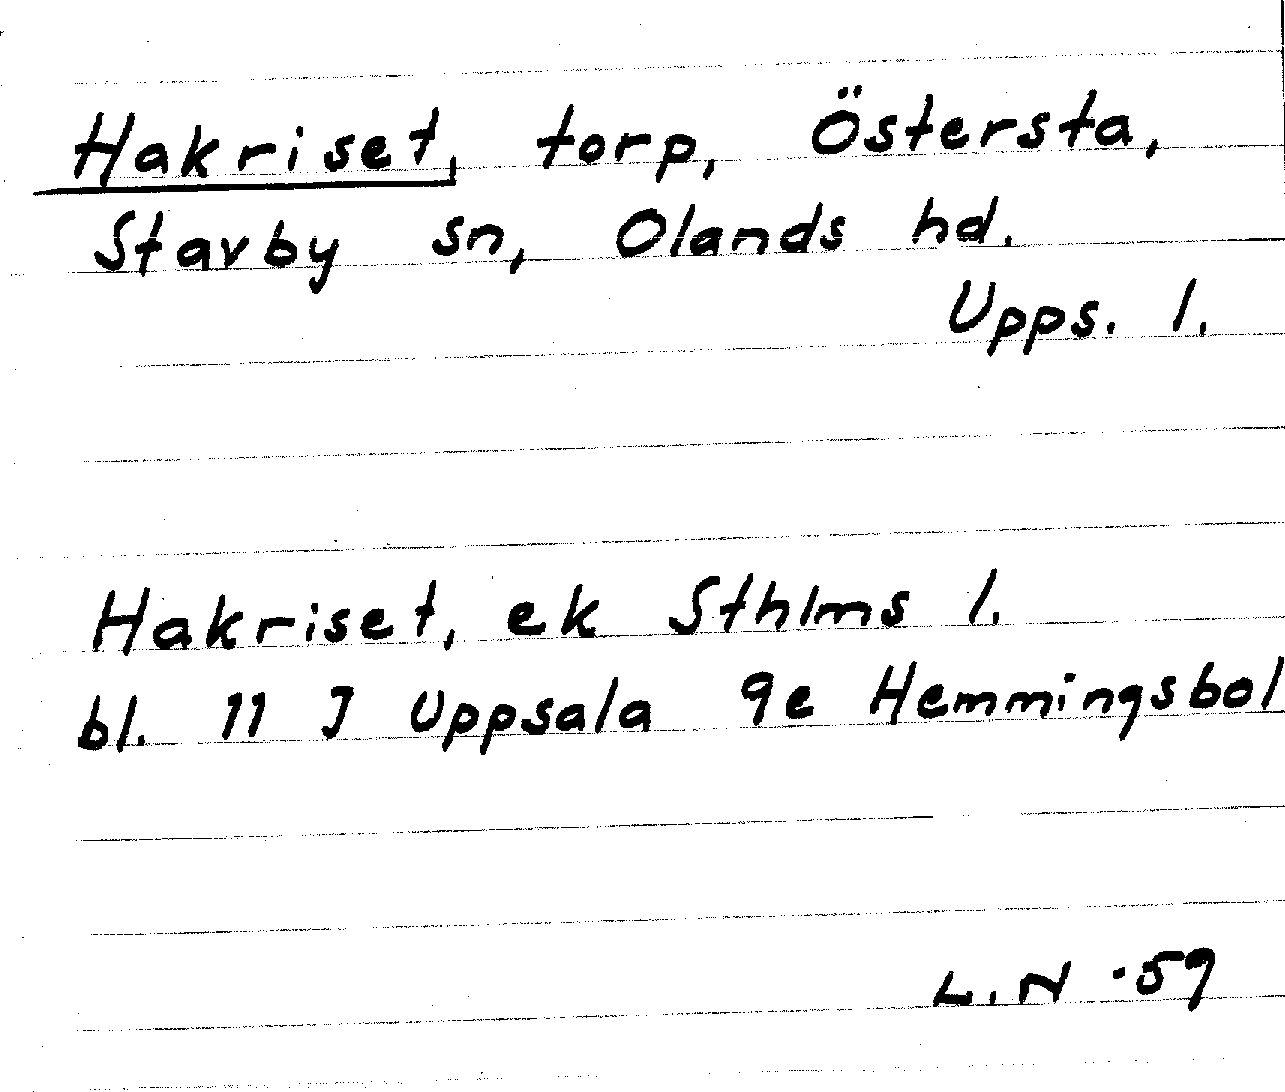 Hakriset, torp, Östersta,
Stavby sn, Olands hd.
Upps. l.
Hakriset, ek Sthlms l.
bl. 11 J Uppsala 9e Hemmingsbol
L.N -59